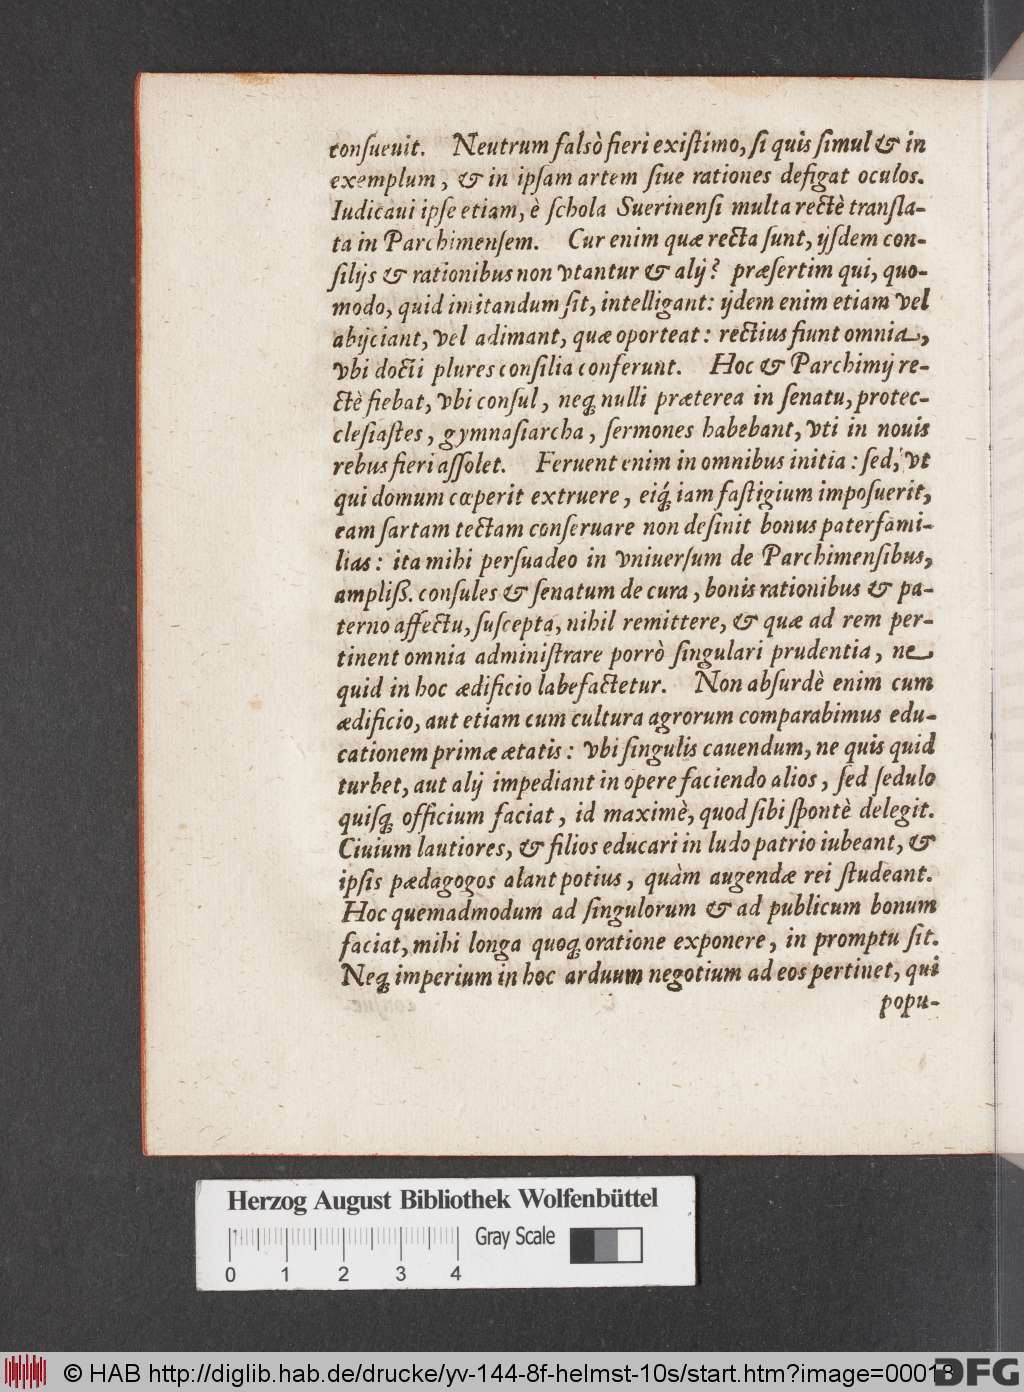 conſueuit. Neutrum falsò fieri exiſtimo, ſi quis ſimul & in
exemplum, & in ipſam artem ſiue rationes defigat oculos.
Iudicaui ipſe etiam, è ſchola Suerinenſi multa rectè tranſla-
ta in Parchimenſem. Cur enim quæ recta ſunt, ijſdem con-
ſilijs & rationibus non vtantur & alij? præſertim qui, quo-
modo, quid imitandum ſit, intelligant: ijdem enim etiam vel
abijciant, vel adimant, quæ oporteat: rectius fiunt omnia,
vbi docti plures conſilia conferunt. Hoc & Parchimij re-
ctè fiebat, vbi conſul, neq́ꝫ nulli præterea in ſenatu, protec-
cleſiaſtes, gymnaſiarcha, ſermones habebant, vti in nouis
rebus fieri aſſolet. Feruent enim in omnibus initia: ſed, vt
qui domum cœperit extruere, eiq́ꝫ iam faſtigium impoſuerit,
eam ſartam tectam conſeruare non deſinit bonus paterfami-
lias: ita mihi perſuadeo in vniuerſum de Parchimenſibus,
ampliß. conſules & ſenatum de cura, bonis rationibus & pa-
terno affectu, ſuſcepta, nihil remittere, & quæ ad rem per-
tinent omnia adminiſtrare porrò ſingulari prudentia, ne
quid in hoc ædificio labefactetur. Non abſurdè enim cum
ædificio, aut etiam cum cultura agrorum comparabimus edu-
cationem primæ ætatis: vbi ſingulis cauendum, ne quis quid
turbet, aut alij impediant in opere faciendo alios, ſed ſedulo
quiſqꝫ officium faciat, id maximè, quod ſibi ſpontè delegit.
Ciuium lautiores, & filios educari in ludo patrio iubeant, &
ipſis pædagogos alant potius, quàm augendæ rei ſtudeant.
Hoc quemadmodum ad ſingulorum & ad publicum bonum
faciat, mihi longa quoqꝫ oratione exponere, in promptu ſit.
Neqꝫ imperium in hoc arduum negotium ad eos pertinet, qui
popu-
Herzog August Bibliothek Wolfenbüttel
Gray Scale
0 1 2 3 4
© HAB http://diglib.hab.de/drucke/yv-144-8f-helmst-10s/start.htm?image=00018
DFG